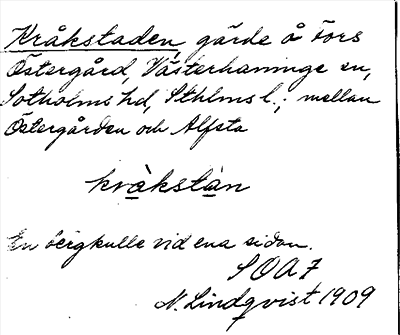 Kråkstaden, gärde å Fors
Östergård, Västerhaninge sn,
Sotholms hd, Sthlms l.; mellan
Östergården och Alfsta
kråkstàn
En bergkulle vid ena sidan.
SOA 7
N. Lindqvist 1909